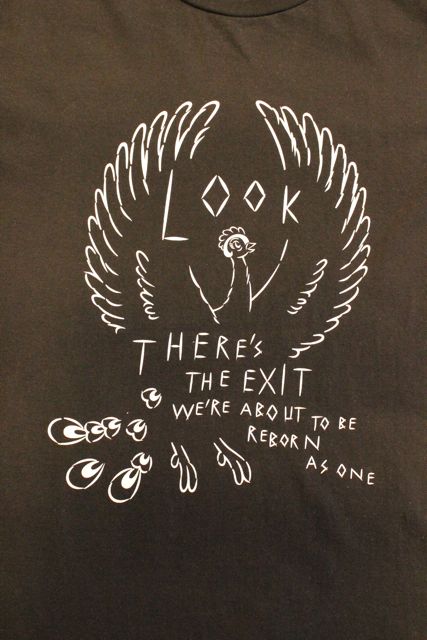 LOOK
THERE'S
THE EXIT
WE'RE ABOUT TO BE
REBORN
AS ONE